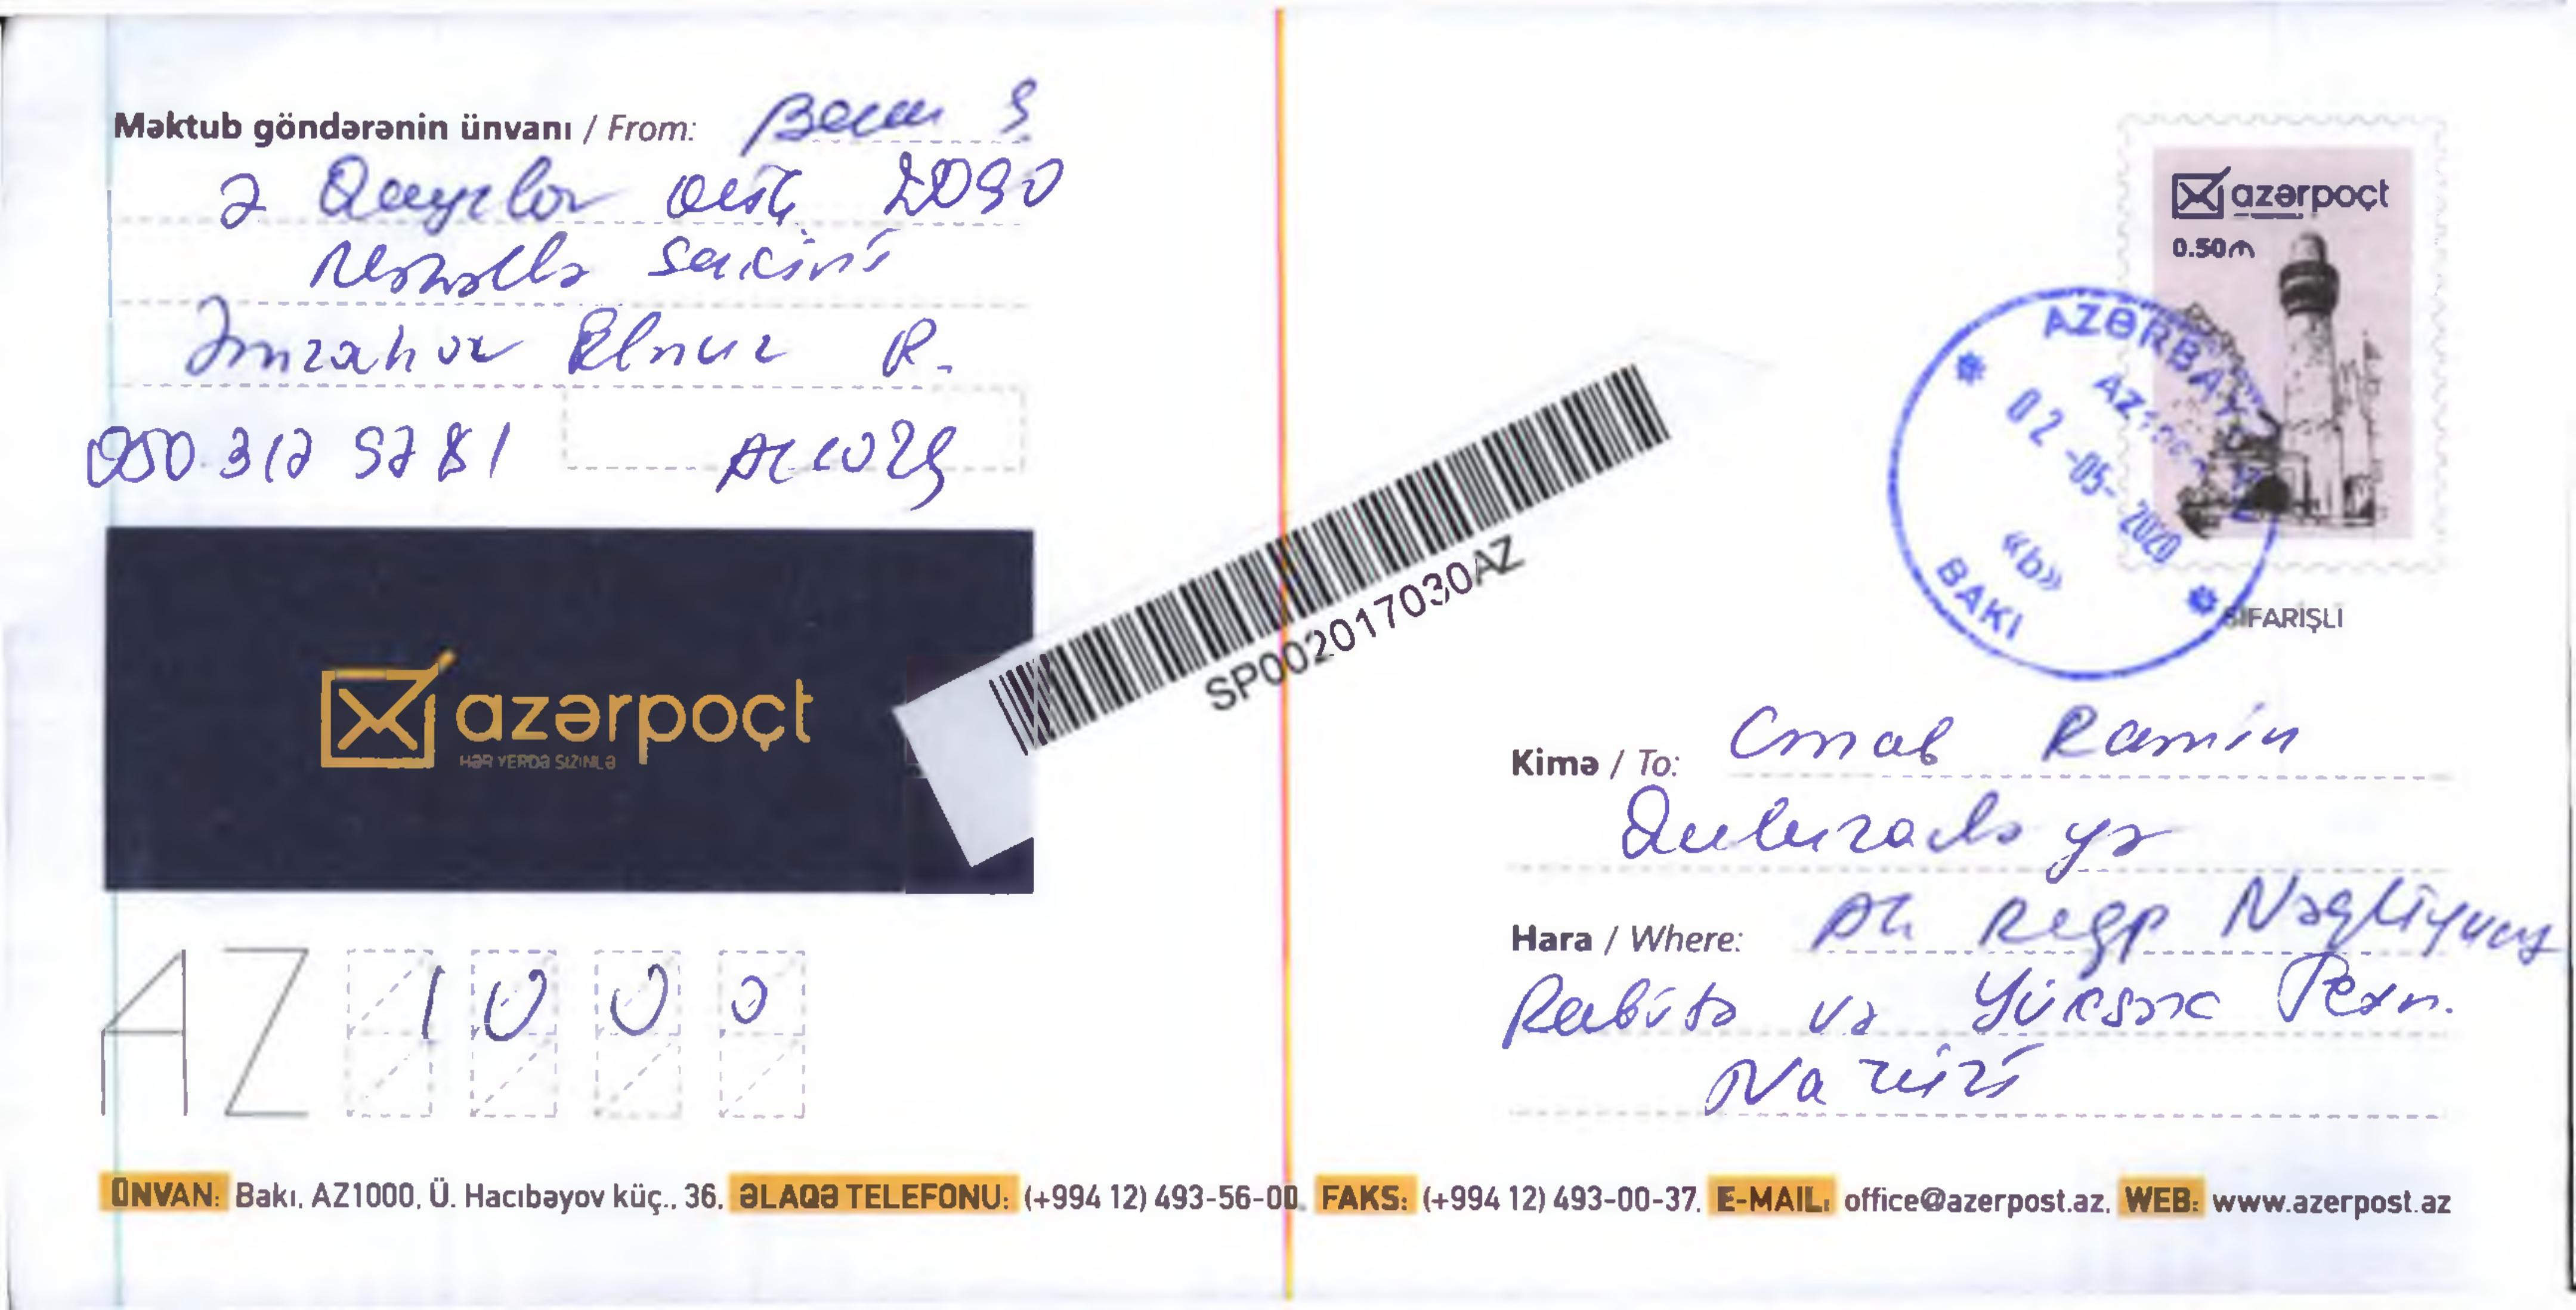 Məktub göndərənin ünvanı / From: Bakı ş
Ə Quyılar 2090
sakini
Elnur R.
050 317 57 81
azərpoçt
HƏR YERDƏ SİZİNLƏ
AZ 1000
SP002017030AZ
azərpoçt
0.50₼
AZƏRBAYCAN
02 -05- 2020
«b»
BAKI
SİFARİŞLİ
Kimə / To: Cmab Ramin
Quluzadəyə
Hara / Where: AR Nəqliyyat
Rabitə və Yüksək Texn.
Naziri
ÜNVAN: Bakı, AZ1000, Ü. Hacıbəyov küç., 36, ƏLAQƏ TELEFONU: (+994 12) 493-56-00, FAKS: (+994 12) 493-00-37, E-MAIL: office@azerpost.az, WEB: www.azerpost.az